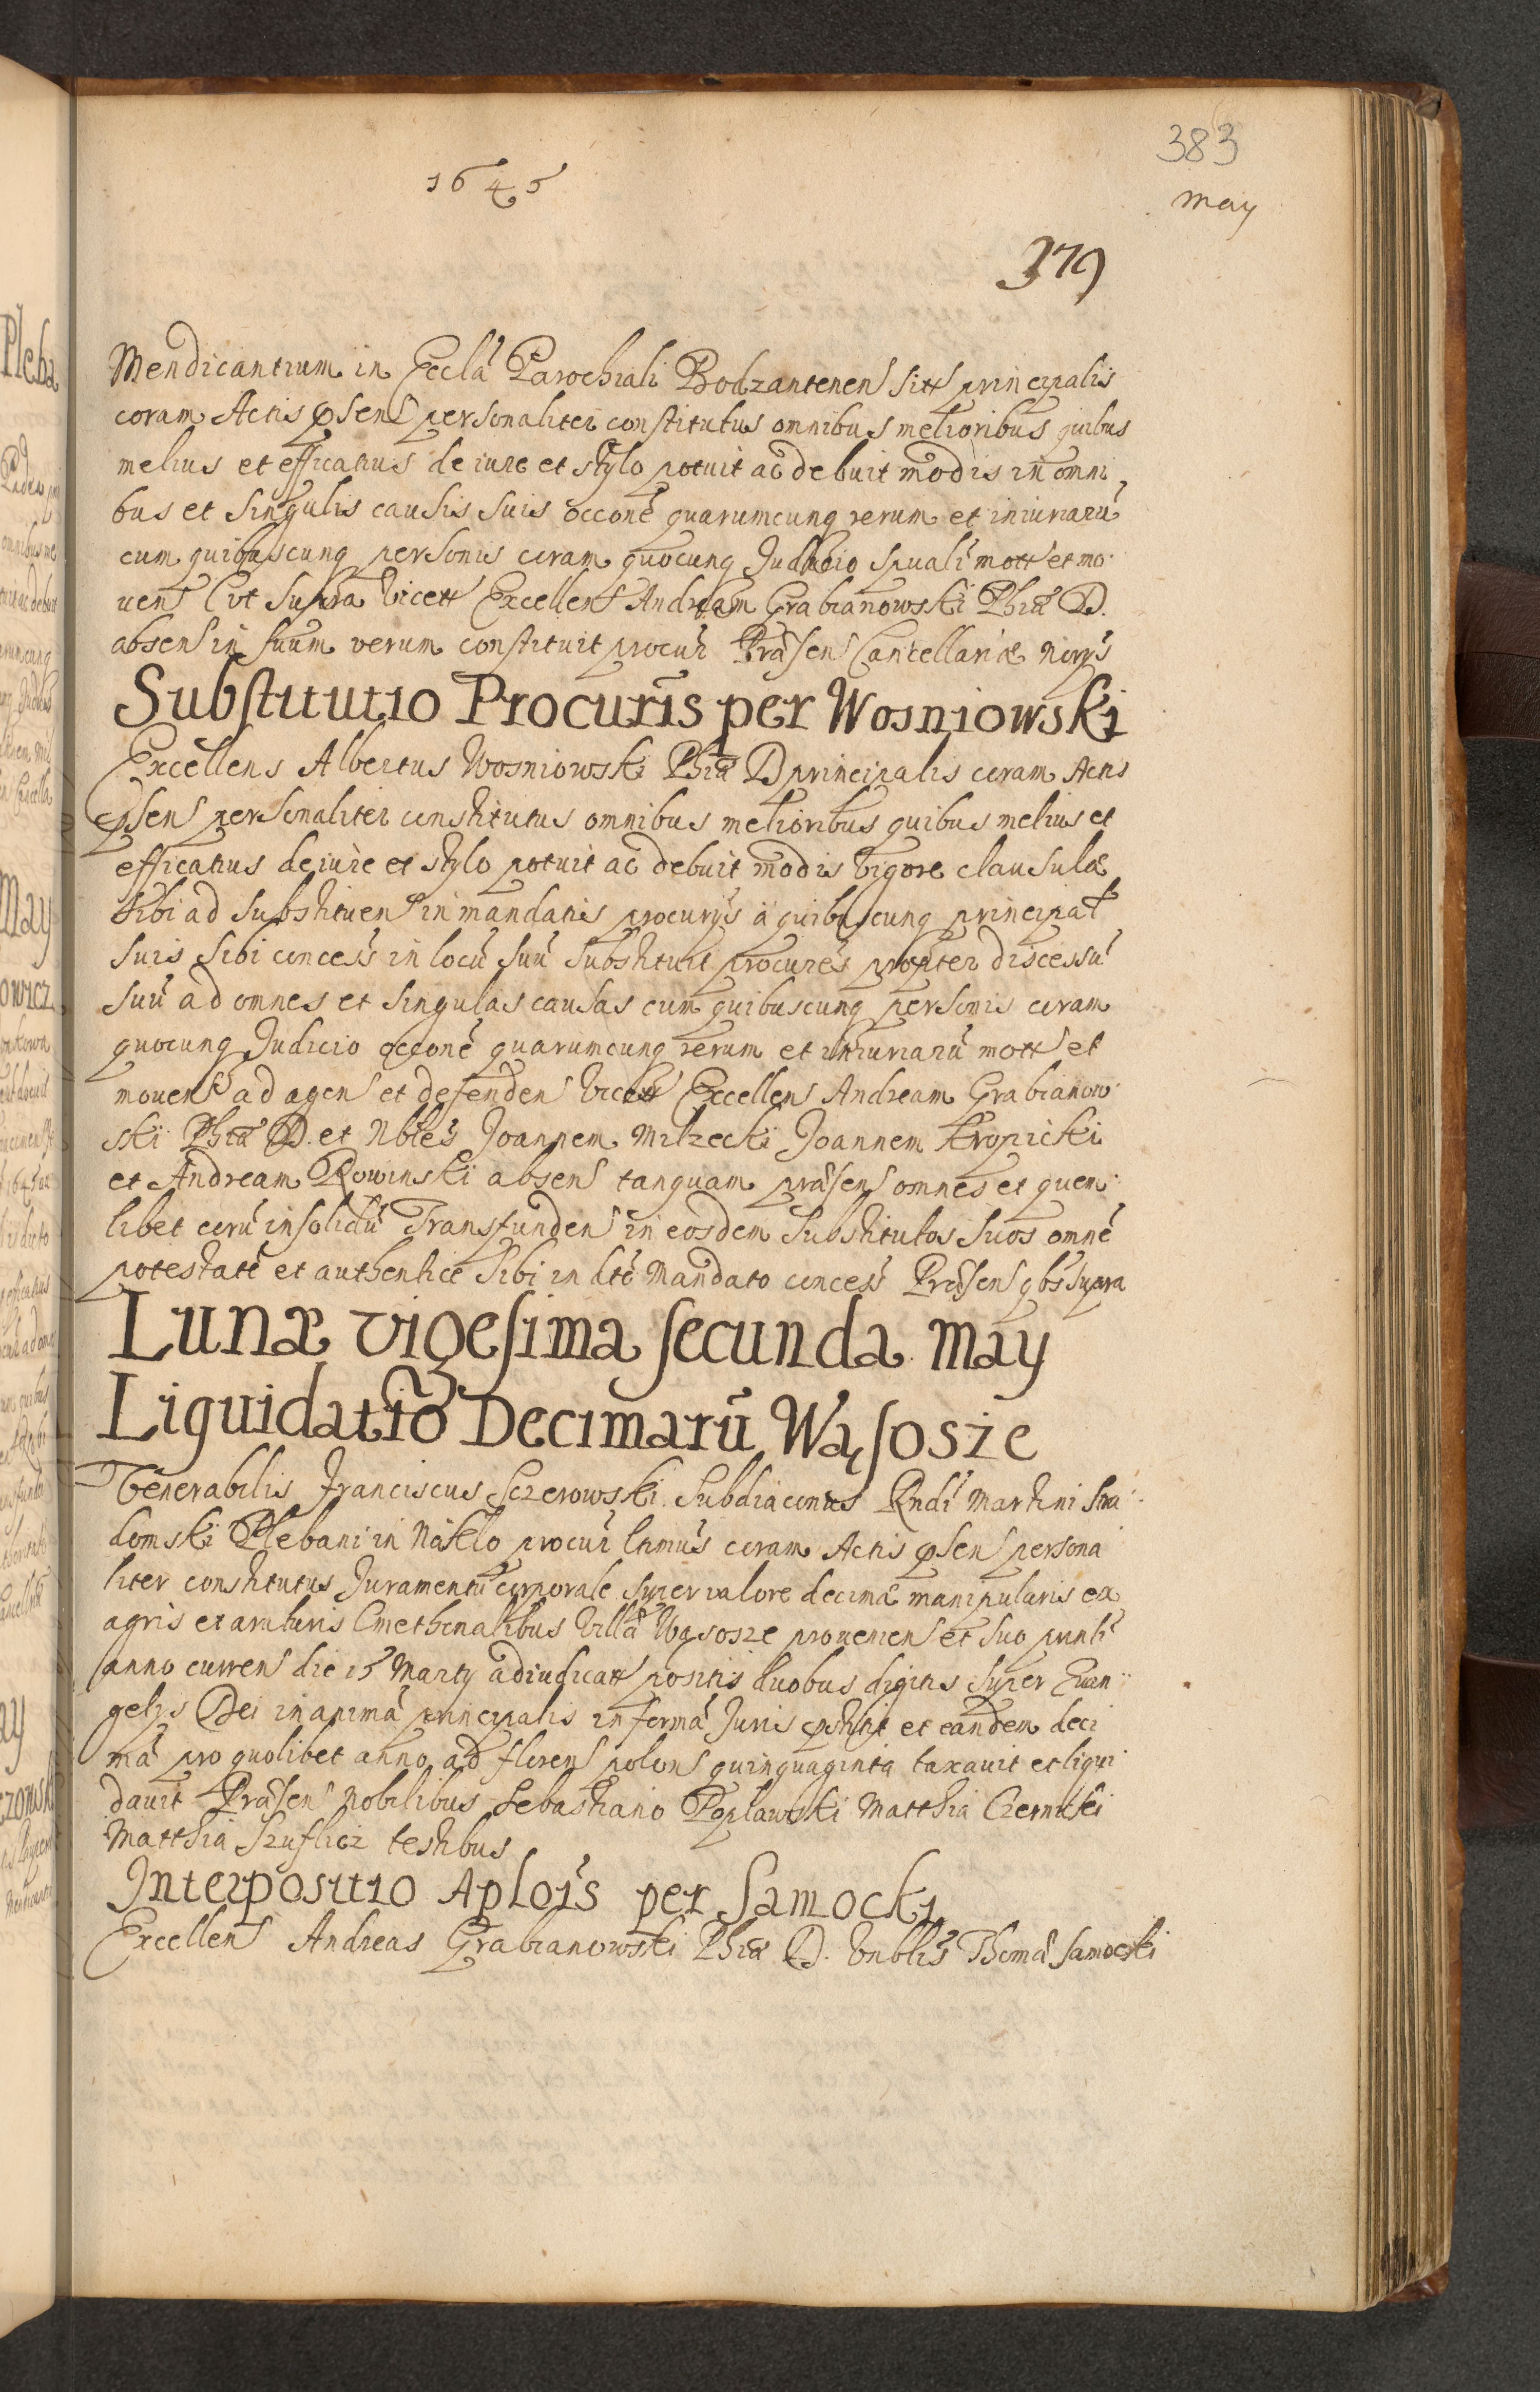 383
1645
May
379
Mendicantium in Ecclã Parochiali Bodzantenen sitt principalis
coram Actis psen personaliter constitutus omnibus melioribus quibus
melius et efficatius de iure et stylo potuit ac debuit modis in omni
bus et singulis causis suis occone quarumcunq rerum et iniuriarũ
cum quibuscunq personis coram quocunq Judicio spuali mott et mo
uen ut supra vicett Excellen Andream Grabianowski Phiæ D.
absen in suum verum constituit procur Præsen Cancellariæ norys
Substitutio Procuris per Wosniowski
Excellens Albertus Wosniowski Phiæ D principalis coram Actis
psen personaliter constitutus omnibus melioribus quibus melius et
efficatius de iure et stylo potuit ac debuit modis vigore clausulæ
sibi ad substituen in mandatis procuryis a quibuscunq principat
suis sibi concess in locũ suũ substituit procures propter discessũ
suũ ad omnes et singulas causas cum quibuscunq personis coram
quocunq Judicio occone quarumcunq rerum et iniuriarũ mott et
mouen ad agen et defenden vicett Excellen Andream Grabianow
ski Phiæ D. et Nbles Joannem Milzecki Joannem Krypicki
et Andream Rowinski absen tanquam præsen omnes et quem
libet eorũ insolidũ Transfunden in eosdem substitutos suos omnẽ
potestatẽ et authentice sibi in dte mandato concess Præsen qbs supra
Lunæ vigesima secunda May
Liquidatio Decimarũ Wąsosze
Venerabilis Franciscus Sczerowski Subdiaconus Rndi Martini Sra
domski Plebani in Naklo procur ltimus coram Actis psen persona
liter constitutus Juramentũ corporale super valore decimæ manipularis ex
agris et araturis Cmethonalibus Villæ Wąsosze prouenien et suo punli
anno curren die 15 Marty adiudicatt positis duobus digitis super Euan
gelys Dei in animã principalis in formã Juris pstitit et eandem deci
mã pro quolibet anno ad floren polon quinquaginta taxauit et liqui
dauit Præsen Nobilibus Sebastiano Poplawski Matthia Czernicki
Matthia Szuflicz testibus
Interpositio Aplois per Samocki
Excellen Andreas Grabianowski Phiæ D. Vnblis Thomæ Samocki